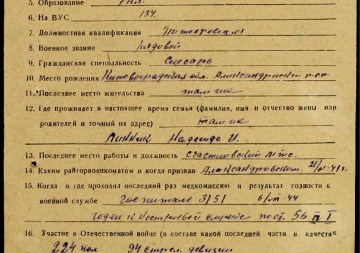 5. Образование
6. На ВУС 134
7. Должностная квалификация
8. Военное звание рядовой
9. Гражданская специальность Слесарь
10. Место рождения Кировоградская обл. Александрийский р-он
11. Последнее место жительства там же
12. Где проживает в настоящее время семья (фамилия, имя и отчество жены или
родителей и точный их адрес) там же
Надежда И.
13. Последнее место работы и должность
14. Каким райгорвоенкоматом и когда призван Александровским
15. Когда и где проходил последний раз медкомиссию и результат годности к
военной службе Госпиталь 3151
Годен к нестроевой службе пост. 336
16. Участие в Отечественной войне (в составе какой последней части и качестве
224 пол 94 стрел. дивизии